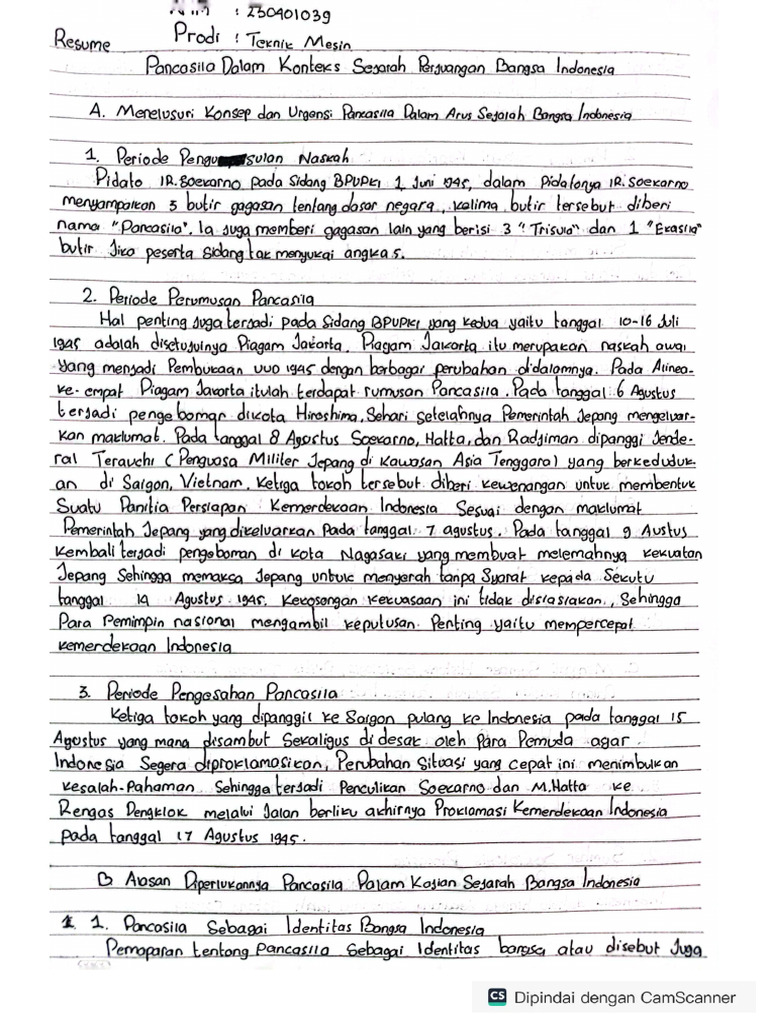 : 230401039
Resume Prodi : Teknik Mesin
Pancasila Dalam Konteks Sejarah Perjuangan Bangsa Indonesia
A. Menelusuri Konsep dan Urgensi Pancasila Dalam Arus Sejarah Bangsa Indonesia
1. Periode Pengusulan Naskah
Pidato IR.Soekarno pada Sidang BPUPKI 1 Juni 1945, dalam Pidatonya IR.Soekarno
menyampaikan 5 butir gagasan tentang dasar negara, kelima butir tersebut diberi
nama "Pancasila". Ia juga memberi gagasan lain yang berisi 3 "Trisula" dan 1 "Ekasila"
butir Jika peserta Sidang tak menyukai angka 5.
2. Periode Perumusan Pancasila
Hal penting juga terjadi pada Sidang BPUPKI yang kedua yaitu tanggal 10-16 Juli
1945 adalah disetujuinya Piagam Jakarta. Piagam Jakarta itu merupakan naskah awal
yang menjadi Pembukaan UUD 1945 dengan berbagai perubahan didalamnya. Pada Alinea-
ke-empat Piagam Jakarta itulah terdapat rumusan Pancasila. Pada tanggal 6 Agustus
terjadi pengeboman dikota Hiroshima, Sehari setelahnya Pemerintah Jepang mengeluar-
kan maklumat. Pada tanggal 8 Agostus Soekarno, Hatta, dan Radjiman dipanggi Jende-
ral Terauchi (Penguosa Militer Jepang di Kawasan Asia Tenggara) yang berkeduduk-
an di Saigon, Vietnam. Ketiga tokoh tersebut diberi kewenangan untuk membentuk
Suatu Panitia Persiapan Kemerdekaan Indonesia Sesuai dengan maklumat
Pemerintah Jepang yang dikeluarkan Pada tanggal 7 agustus. Pada tanggal 9 Austus
Kembali terjadi pengeboman di kota Nagasaki yang membuat melemahnya kekuatan
Jepang Sehingga memaksa Jepang untuk menyerah tanpa Syarat kepada Sekutu
tanggal 14 Agustus 1945. Kekosongan kekuasaan ini tidak disiasiakan, Sehingga
Para Pemimpin nasional mengambil keputusan Penting yaitu mempercepat
kemerdekaan Indonesia
3. Periode Pengesahan Pancasila
Ketiga tokoh yang dipanggil ke Saigon pulang ke Indonesia pada tanggal 15
Agustus yang mana disambut Sekaligus di desak oleh Para Pemuda agar
Indonesia Segera diproklamosikan, Perubahan Situasi yang cepat ini menimbulkan
kesalah-Pahaman Sehingga terjadi Penculikan Soekarno dan M.Hatta ke
Rengas Dengklok melalui Jalan berliku akhirnya Proklamasi Kemerdekaan Indonesia
pada tanggal 17 Agustus 1945.
B Alasan Diperlukannya Pancasila Dalam Kajian Sejarah Bangsa Indonesia
1. Pancasila Sebagai Identitas Bangsa Indonesia
Pemaparan tentang Pancasila Sebagai Identitas bangsa atau disebut Juga
CS Dipindai dengan CamScanner